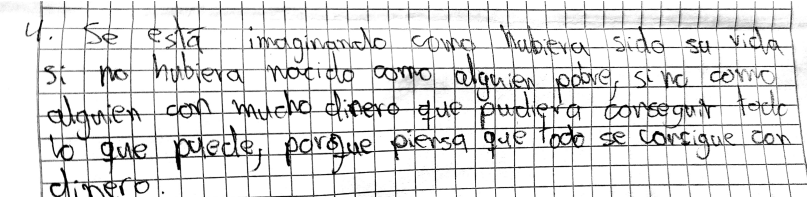 4. Se está imaginando como hubiera sido su vida
si no hubiera nacido como alguien pobre, si no como
alguien con mucho dinero que pudiera conseguir todo
lo que puede, porque piensa que todo se consigue con
dinero.